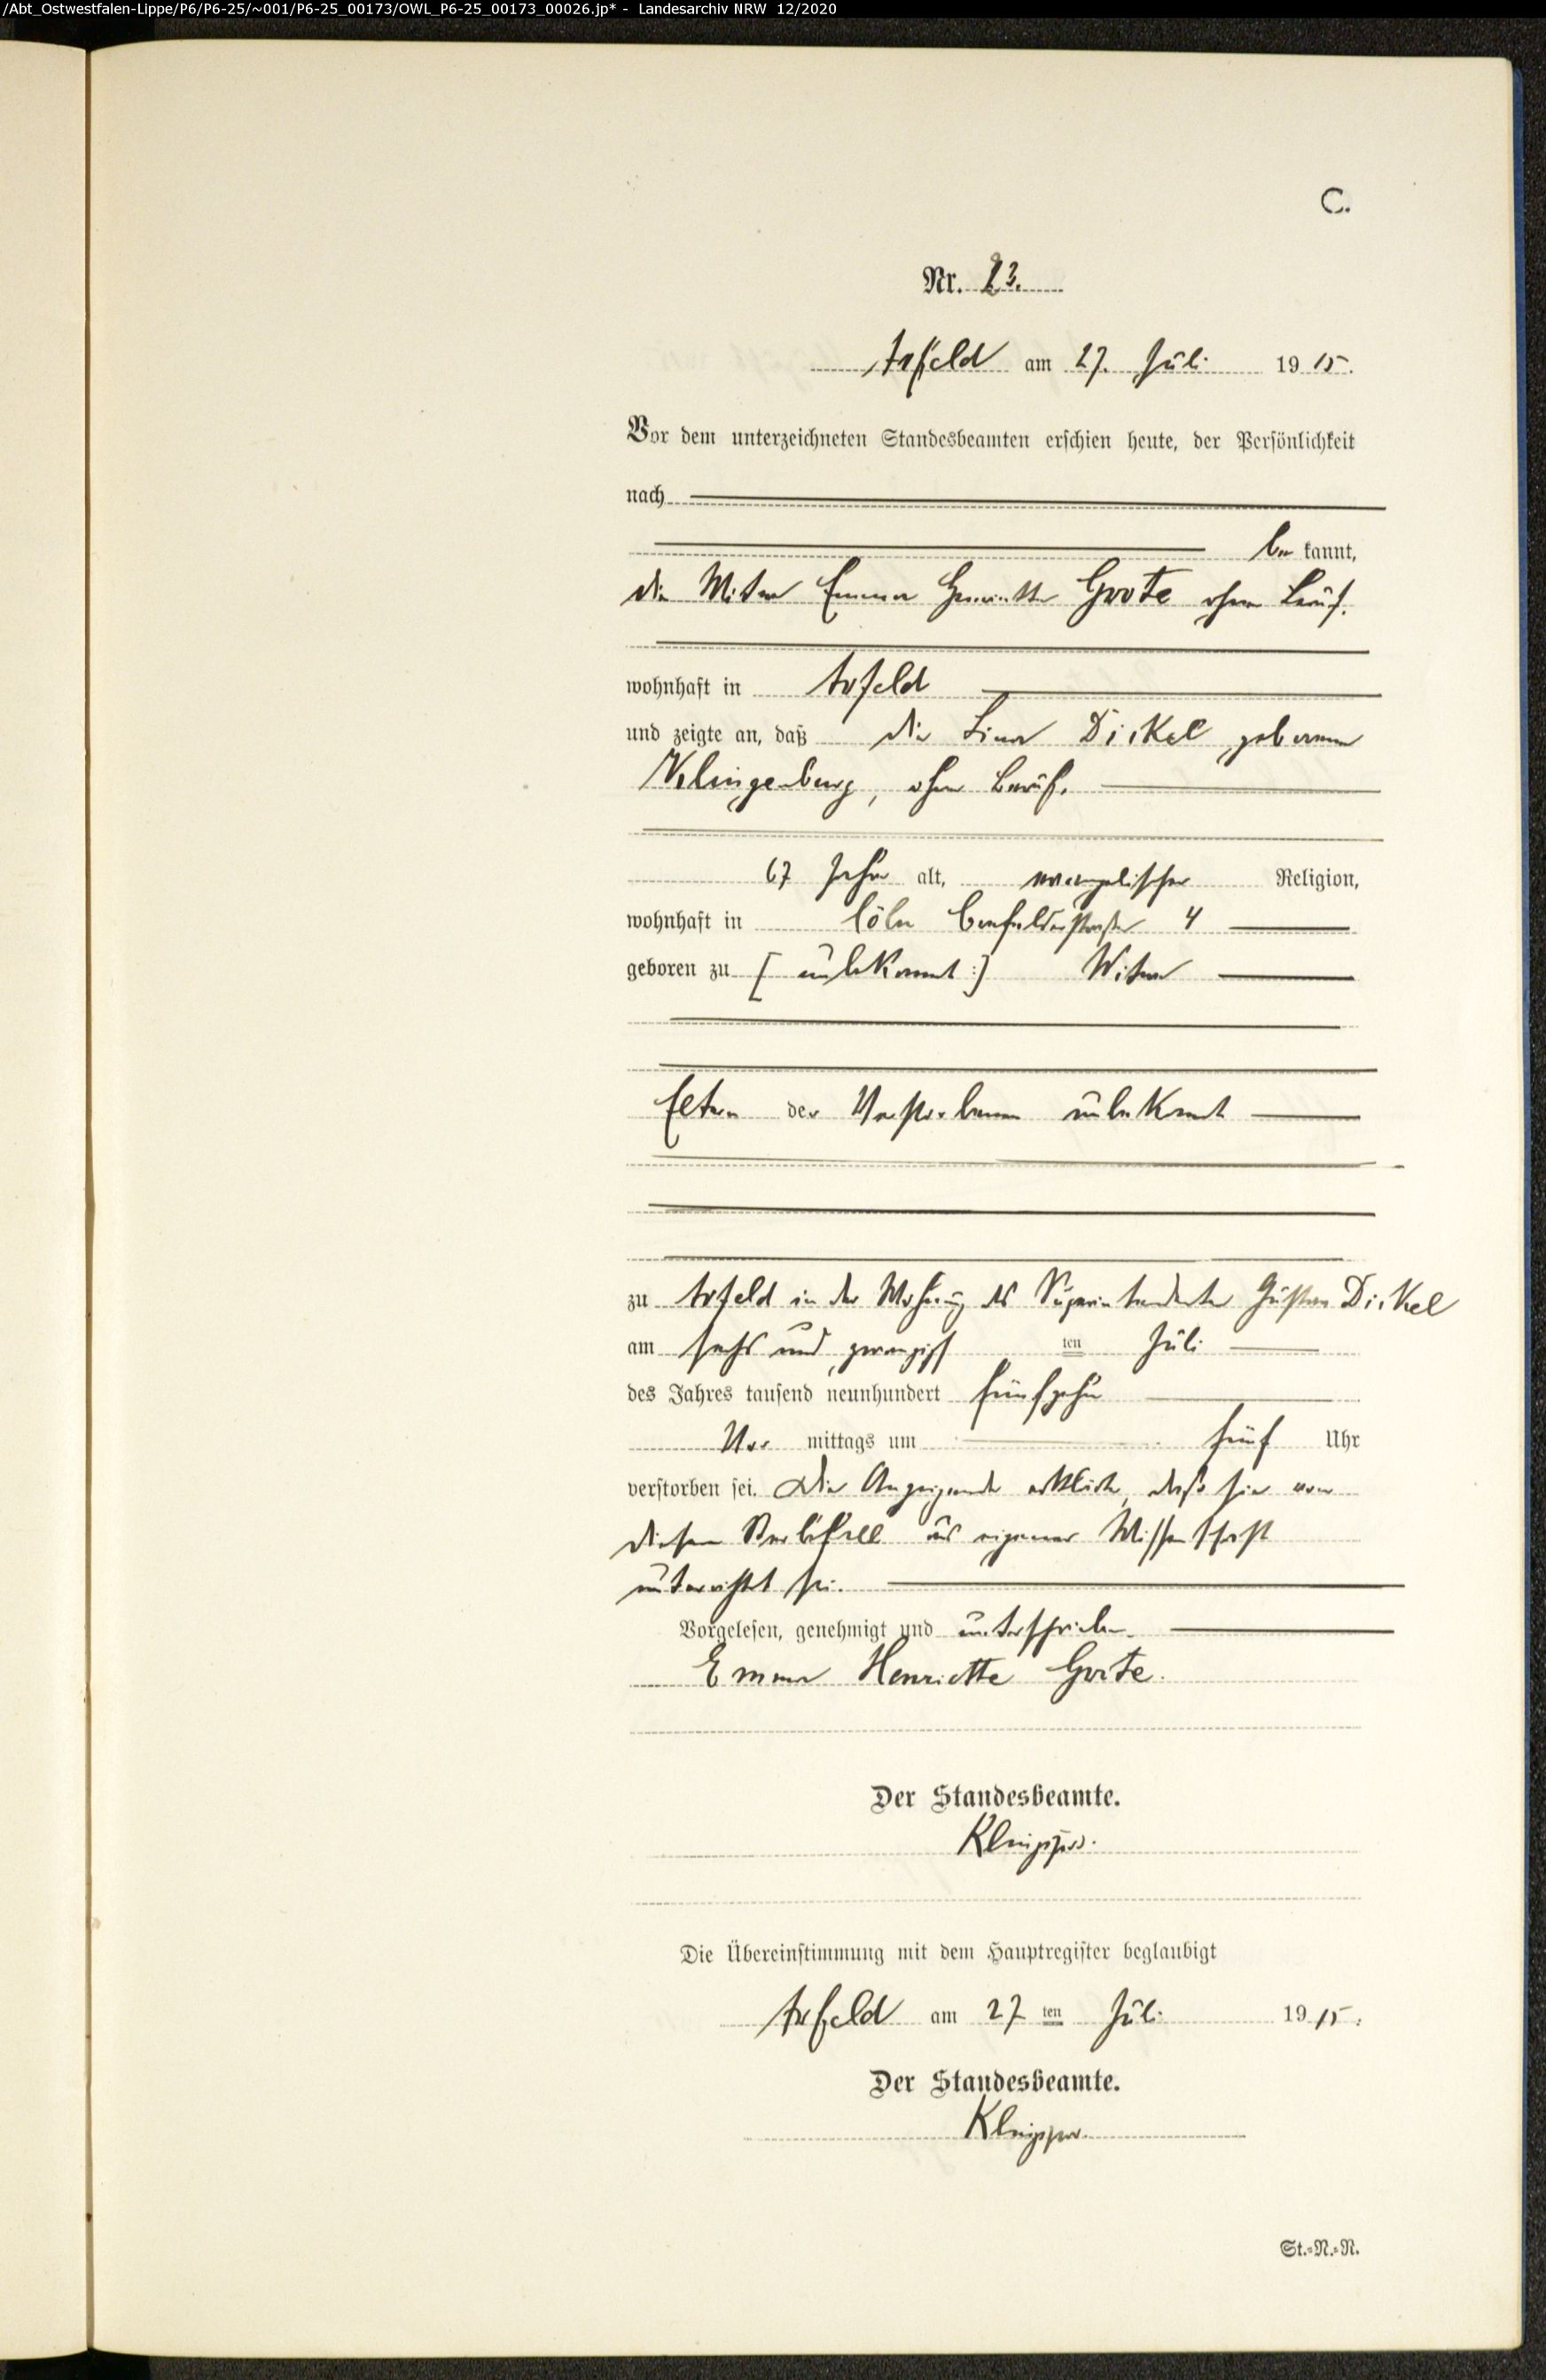 /Abt_Ostwestfalen-Lippe/P6/P6-25/~001/P6-25_00173/OWL_P6-25_00173_00026.jp* - Landesarchiv NRW 12/2020
C.
Nr. 23.
Arfeld am 27. Juli 1915.
Vor dem unterzeichneten Standesbeamten erschien heute, der Persönlichkeit
nach
be kannt,
die Witwe Emma Henriette Grote ohne Beruf.
wohnhaft in Arfeld
und zeigte an, daß die Lina Dickel geborene
Klingenburg, ohne Beruf.
67 Jahre alt, evangelischer Religion,
wohnhaft in Cöln 4
geboren zu [ unbekannt :] Witwe
Eltern der Verstorbenen unbekannt
zu Arfeld in der Wohnung des Superintendenten Gustav Dickel
am sechs und zwanzigsten Juli
des Jahres tausend neunhundert fünfzehn
Vor mittags um fünf Uhr
verstorben sei. Die Anzeigende erklärte, daß sie von
diesem Sterbefall aus eigener Wissenschaft
unterrichtet sei.
Vorgelesen, genehmigt und unterschrieben.
Emma Henriette Grote.
Der Standesbeamte.
Die Übereinstimmung mit dem Hauptregister beglaubigt
Arfeld am 27 ten Juli 1915.
Der Standesbeamte.
St.=N.=N.